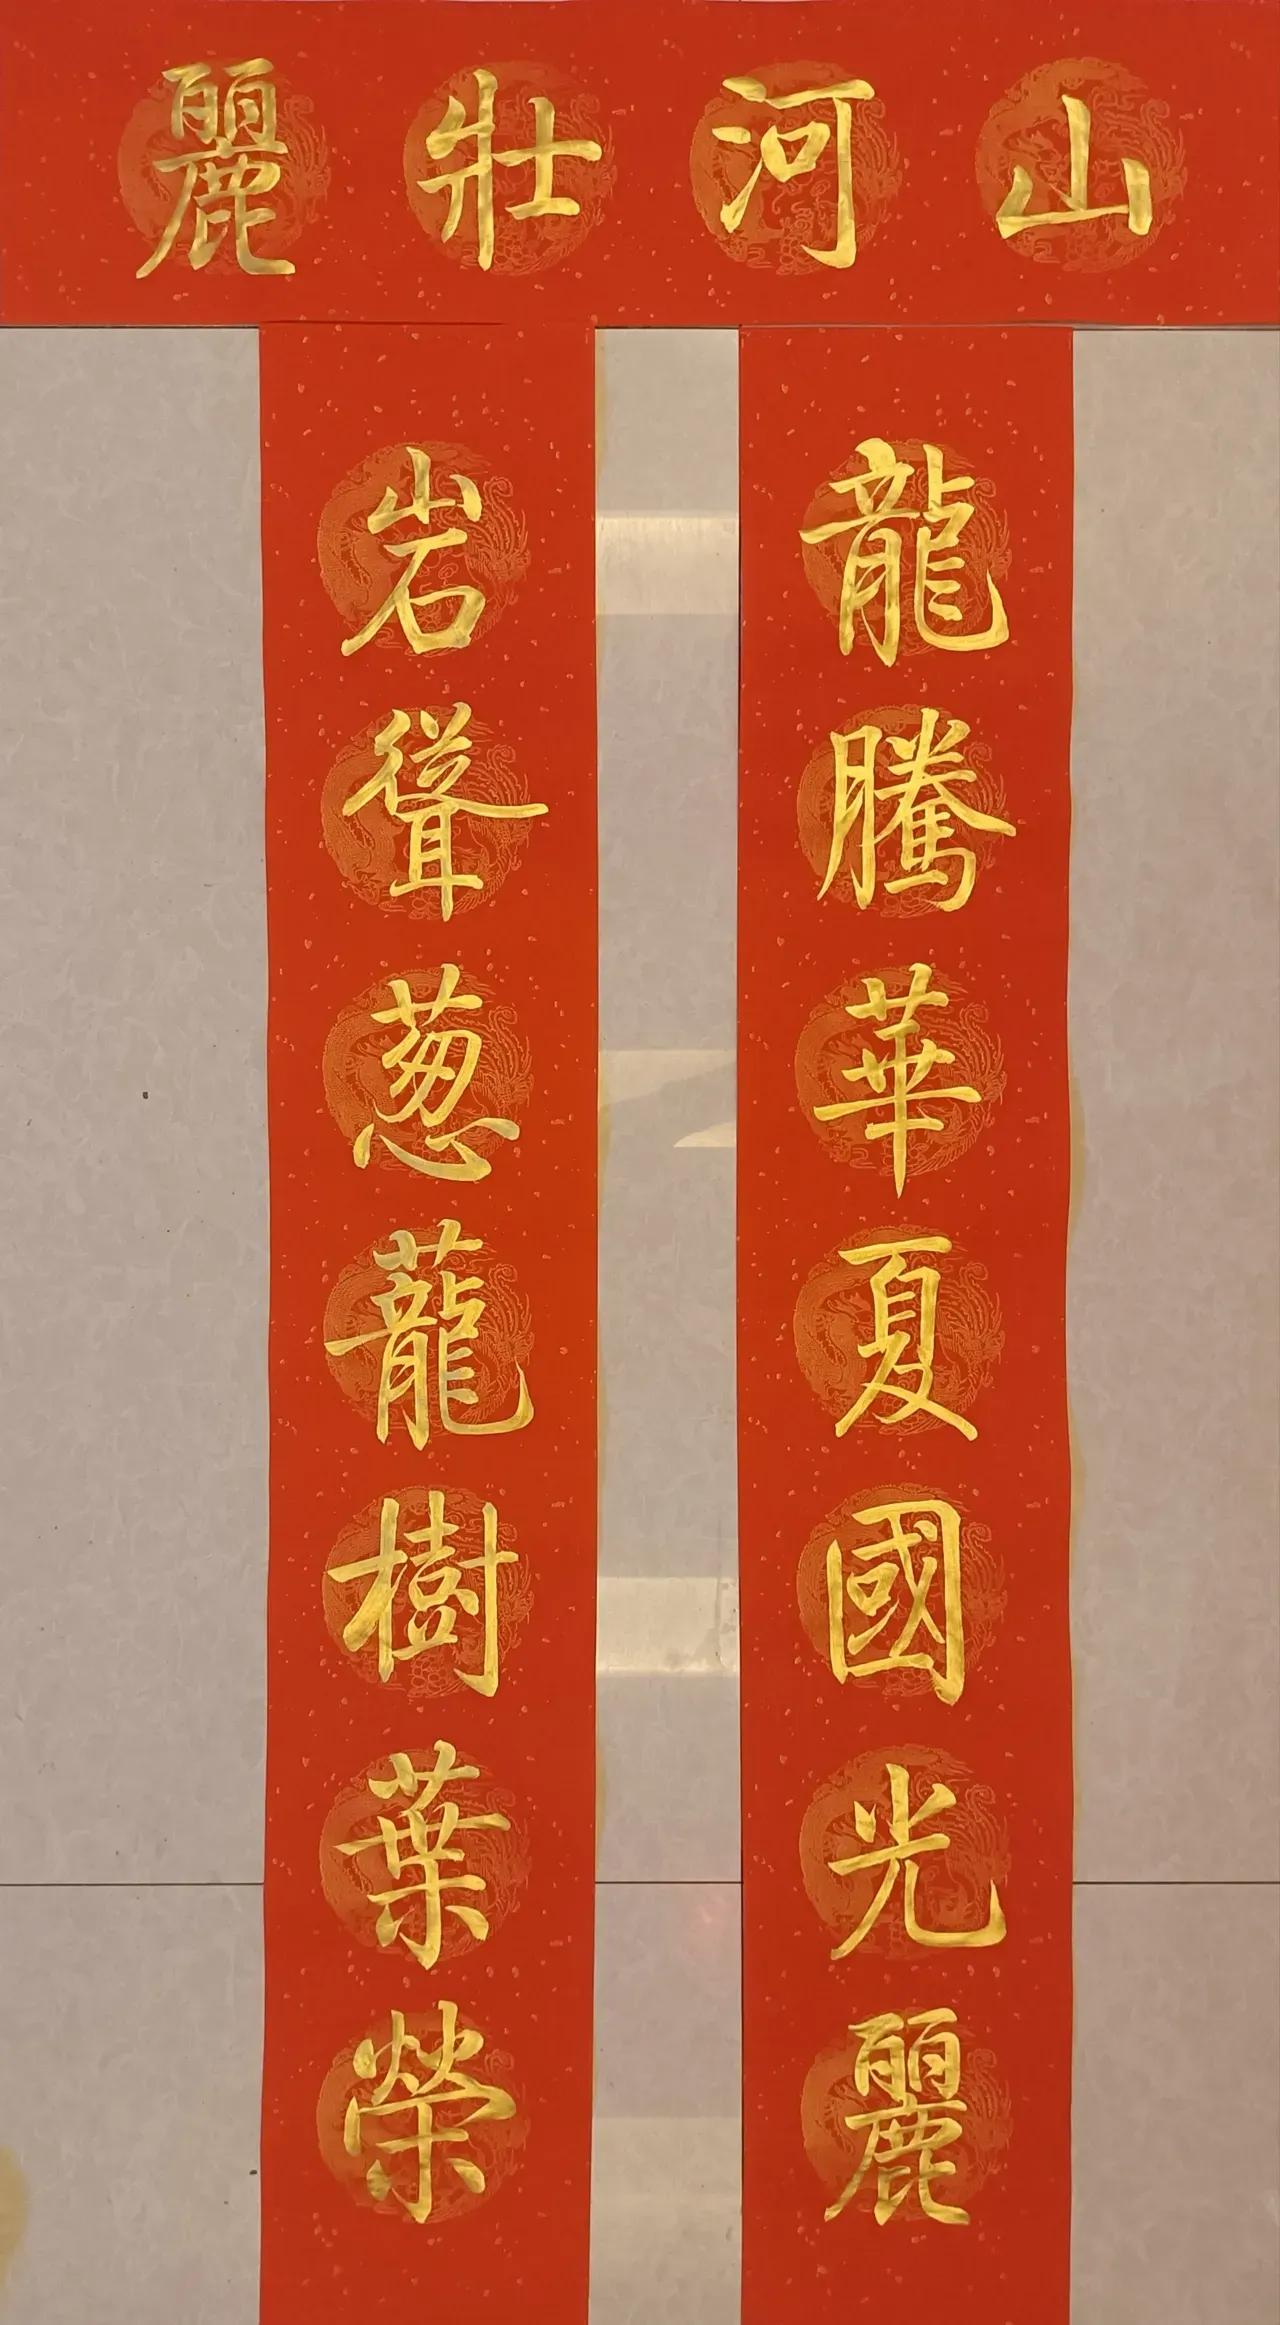 山河壯麗
龍騰華夏國光麗
岩聳葱蘢樹葉榮